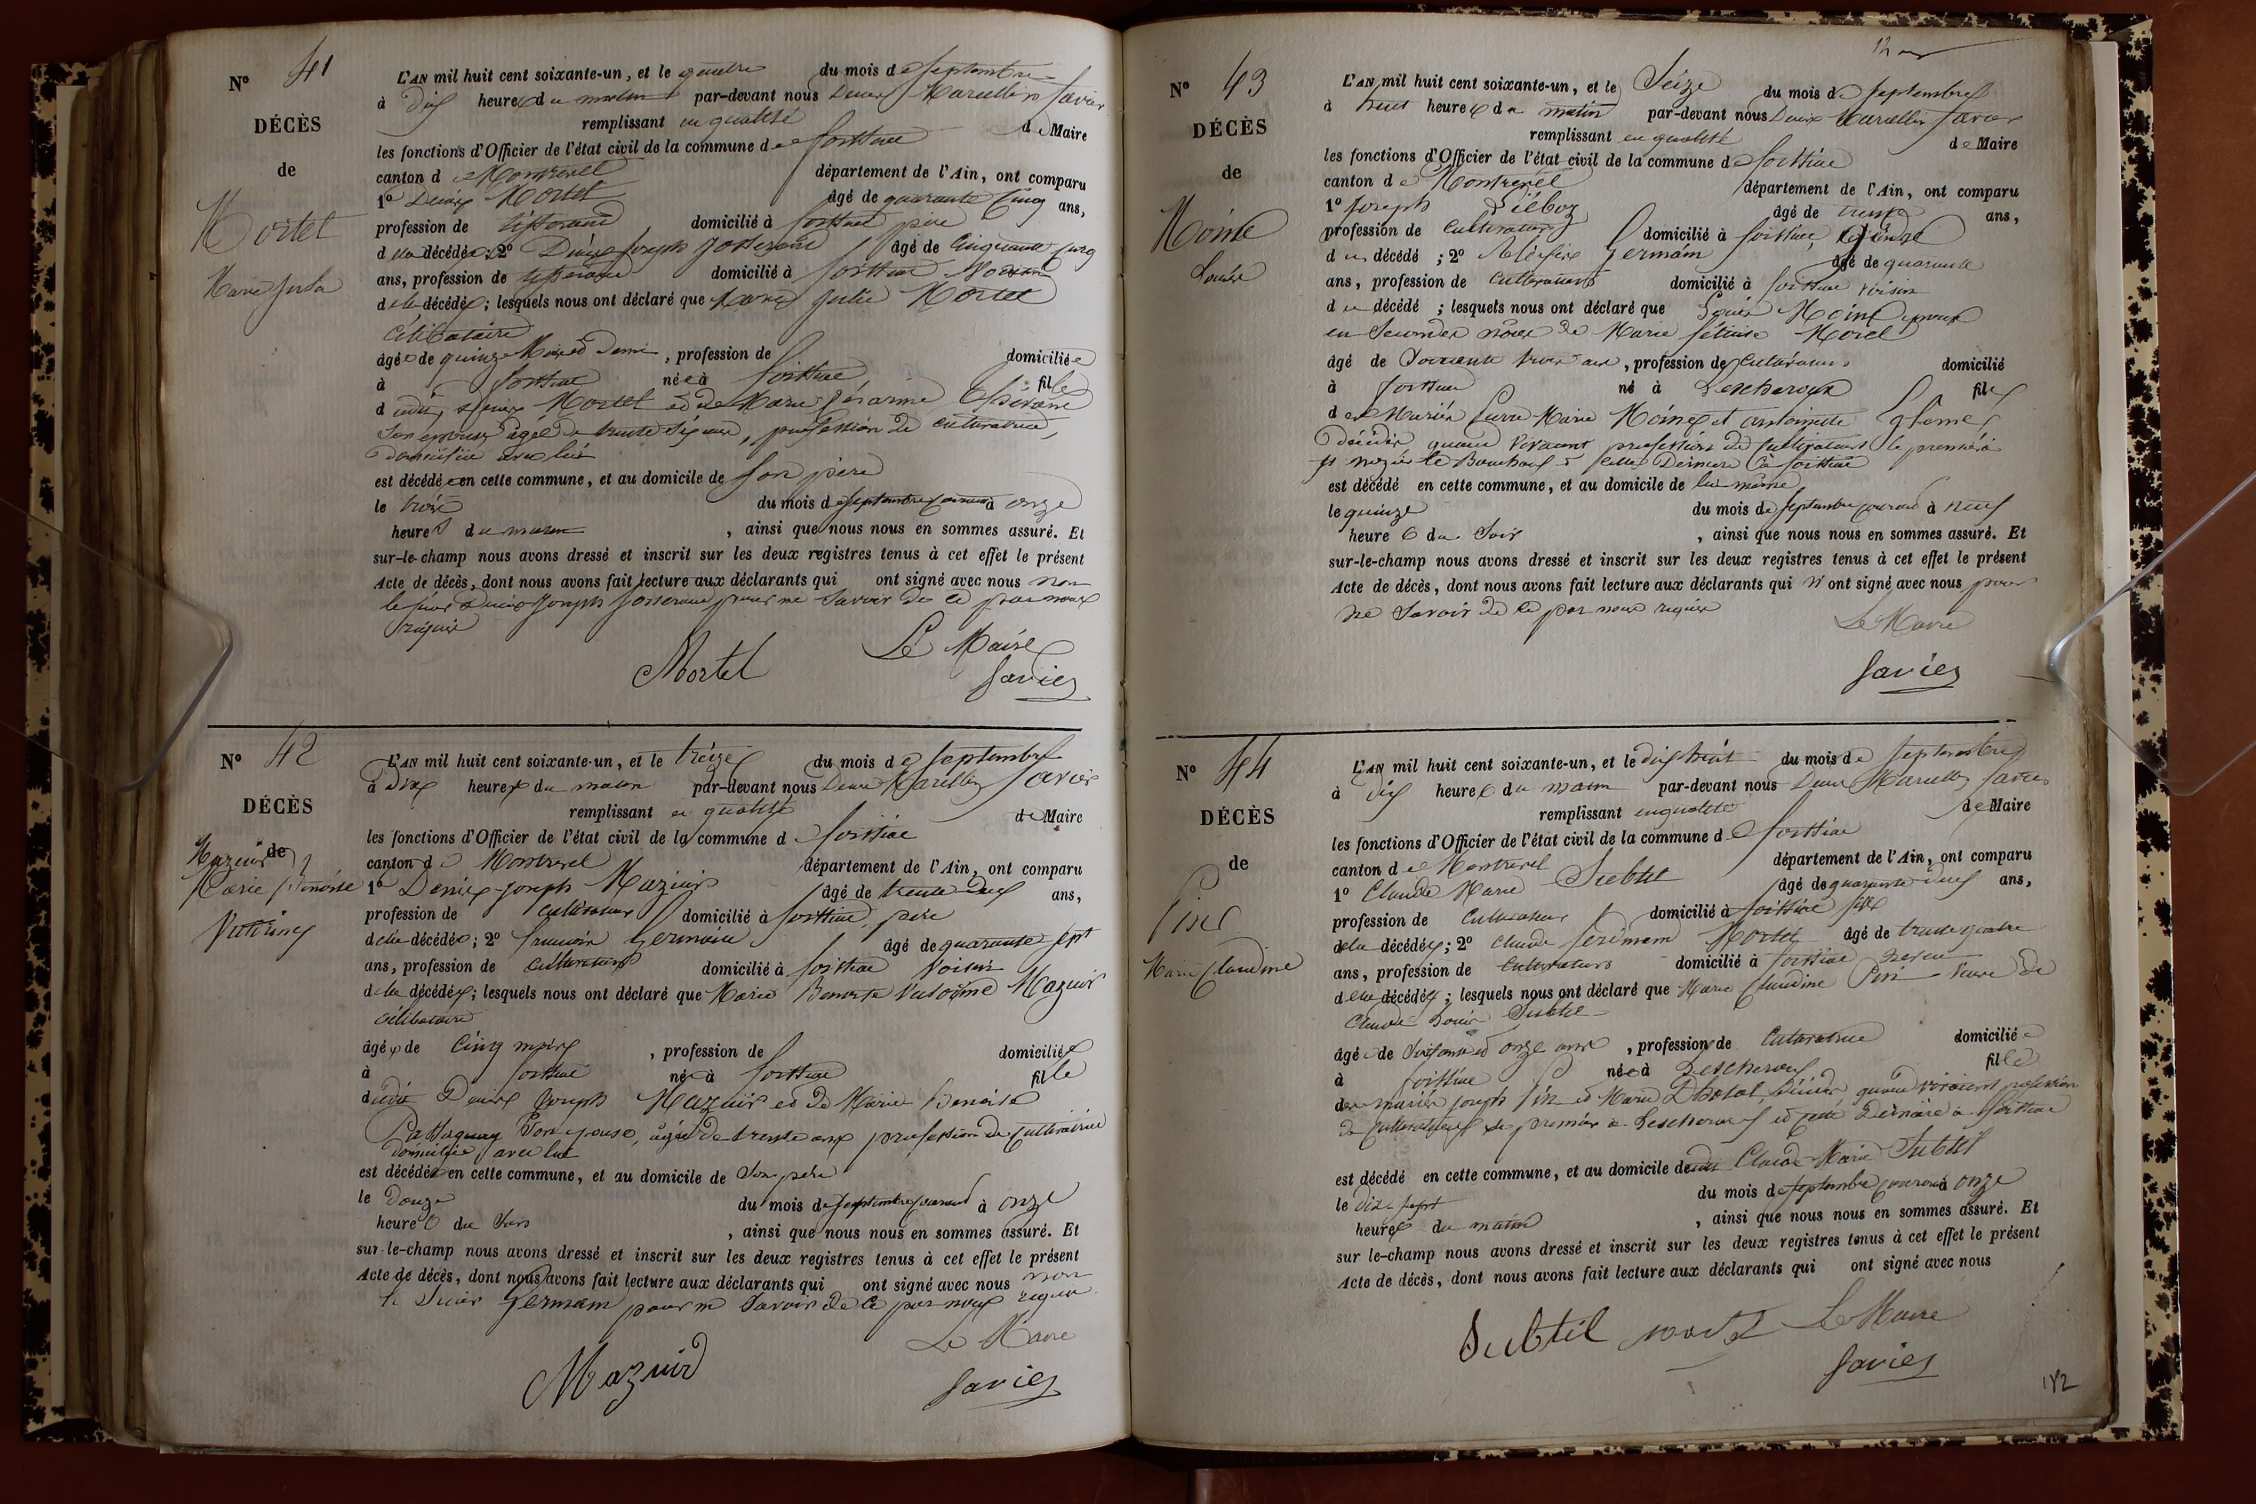 N° 41
DÉCÈS
de
Mortet
Marie Julie
L'AN mil huit cent soixante-un, et le quatre du mois de septembre
à dix heures du matin par-devant nous Denis Marcellin Savier
remplissant en qualité de Maire
les fonctions d'Officier de l'état civil de la commune de foissiat
canton de Montrevel département de l'Ain, ont comparu
1° Denis Mortet âgé de quarante cinq ans,
profession de domicilié à foissiat père
de la décédée 2° Denis Joseph Josserand âgé de cinquante cinq
ans, profession de domicilié à foissiat Voisin
de la décédée; lesquels nous ont déclaré que Marie Julie Mortet
Célibataire
âgée de quinze Mois et demi, profession de domiciliée
à foissiat née à foissiat fille
dudit Denis Mortet et de Marie
Son épouse âgée de trente six ans, profession de cultivatrice,
domiciliée avec lui
est décédée en cette commune, et au domicile de son père
le trois du mois de septembre courant à onze
heures du matin, ainsi que nous nous en sommes assuré. Et
sur-le-champ nous avons dressé et inscrit sur les deux registres tenus à cet effet le présent
Acte de décès, dont nous avons fait lecture aux déclarants qui ont signé avec nous non
le sieur Denis Joseph Josserand pour ne savoir de ce par nous
requis
Le Maire
Mortet Savier
N° 42
DÉCÈS
de
Mazuir
Marie Benoite
Victorine
L'AN mil huit cent soixante-un, et le treize du mois de septembre
à dix heures du matin par-devant nous Denis Marcellin Savier
remplissant en qualité de Maire
les fonctions d'Officier de l'état civil de la commune de foissiat
canton de Montrevel département de l'Ain, ont comparu
1° Denis Joseph Mazuir âgé de trente deux ans,
profession de cultivateur domicilié à foissiat père
de la décédée; 2° Germain âgé de quarante sept
ans, profession de cultivateur domicilié à foissiat voisin
de la décédée; lesquels nous ont déclaré que Marie Benoite Victorine Mazuir
célibataire
âgée de cinq mois, profession de domiciliée
à foissiat née à foissiat fille
dudit Denis Joseph Mazuir et de Marie Benoite
son épouse, âgée de trente ans profession de cultivatrice
domiciliée avec lui
est décédée en cette commune, et au domicile de son père
le douze du mois de septembre courant à onze
heures du soir, ainsi que nous nous en sommes assuré. Et
sur-le-champ nous avons dressé et inscrit sur les deux registres tenus à cet effet le présent
Acte de décès, dont nous avons fait lecture aux déclarants qui ont signé avec nous non
le sieur Germain pour ne savoir de ce par nous requis
Le Maire
Mazuir Savier
N° 43
DÉCÈS
de
Moine
Louis
L'AN mil huit cent soixante-un, et le Seize du mois de septembre
à huit heures du matin par-devant nous Denis Marcellin Savier
remplissant en qualité de Maire
les fonctions d'Officier de l'état civil de la commune de foissiat
canton de Montrevel département de l'Ain, ont comparu
1° Joseph Piéboz âgé de trente ans,
profession de cultivateur domicilié à foissiat, gendre
du décédé; 2° Germain âgé de quarante
ans, profession de cultivateur domicilié à foissiat voisin
du décédé; lesquels nous ont déclaré que Louis Moine époux
en secondes noces de Marie Morel
âgé de soixante trois ans, profession de cultivateur domicilié
à foissiat né à Lescheroux fils
des Mariés Pierre Marie Moine et antoinette
décédés quand vivaient profession de cultivateurs le premier à
St nizier le Bouchoux et cette Dernière à foissiat
est décédé en cette commune, et au domicile de lui même
le quinze du mois de septembre courant à neuf
heures du soir, ainsi que nous nous en sommes assuré. Et
sur-le-champ nous avons dressé et inscrit sur les deux registres tenus à cet effet le présent
Acte de décès, dont nous avons fait lecture aux déclarants qui n'ont signé avec nous pour
ne savoir de ce par nous requis
Le Maire
Savier
N° 44
DÉCÈS
de
Pin
Marie Claudine
L'AN mil huit cent soixante-un, et le dix huit du mois de septembre
à dix heures du matin par-devant nous Denis Marcellin Savier
remplissant en qualité de Maire
les fonctions d'Officier de l'état civil de la commune de foissiat
canton de Montrevel département de l'Ain, ont comparu
1° Claude Marie Subtil âgé de quarante deux ans,
profession de cultivateur domicilié à foissiat fils
de la décédée; 2° Claude Mortet âgé de trente quatre
ans, profession de cultivateur domicilié à foissiat neveu
de la décédée; lesquels nous ont déclaré que Marie Claudine Pin Veuve de
Claude Louis Subtil
âgée de soixante et onze ans, profession de cultivatrice domiciliée
à foissiat née à Lescheroux fille
des mariés Joseph Pin et Marie décédés quand vivaient profession
de cultivateurs le premier à Lescheroux et cette dernière à foissiat
est décédé en cette commune, et au domicile dudit Claude Marie Subtil
le dix sept du mois de septembre courant à onze
heures du matin, ainsi que nous nous en sommes assuré. Et
sur le-champ nous avons dressé et inscrit sur les deux registres tenus à cet effet le présent
Acte de décès, dont nous avons fait lecture aux déclarants qui ont signé avec nous
Subtil Mortet Le Maire
Savier
182